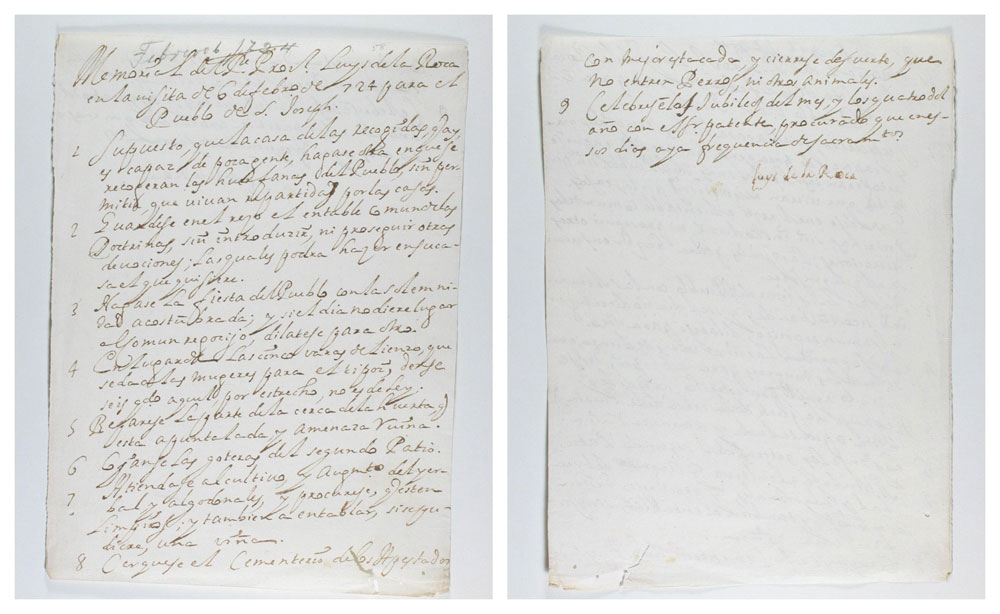 Febrero 6 1724
58
Memorial del Pe. Provl. Luys de la Roca
en la visita de 6 de febro de 724 para el
Pueblo de S. Joseph.
1 Supuesto, que la casa de las recogidas, q ay,
es capaz de poca gente, hagase otra en que se
recogeran las huerfanas del Pueblo, sin per
mitir que vivan repartidas por las casas.
2 Guardese en el rezo el entable comun de las
Doctrinas, sin introduzir, ni proseguir otras
devociones; las quales podra hazer en su ca-
sa el que quisiere.
3 Hagase la fiesta del Pueblo con la solemni
dad acostubrada; y si el dia no diere lugar
al comun regocijo, dilatese para otro.
4 En lugar de las cinco varas de lienzo, que
se da a las mugeres para el tipoi, dense
seis qdo aquel por estrecho, no es de ley.
5 Reparese la parte de la cerca de la huerta q
esta apuntalada y amenaza ruina.
6 Cojanse las goteras del segundo Patio.
7 Atiendase al cultivo, y augmto del yer-
bal y algodonales, y procurese, q esten
limpios; y tambien a entablar, si se pu-
diere, una viña.
8 Cerquese el Cementerio de los Apestados
con mejor estacada y cierrese de suerte, que
no entren Perros, ni otros animales.
9 Celebrense los Jubileos del mes, y los quatro del
año con el Sr patente procurado que en es-
sos dias aya frequencia de sacramtos
Luys de la Roca